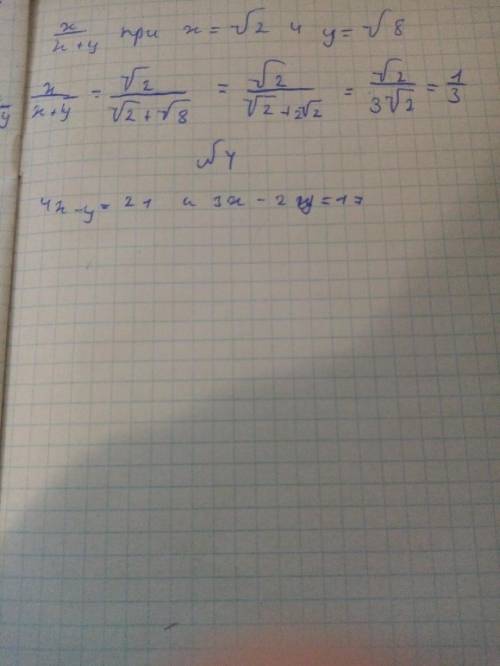 x/(x+y) при x = √2 и y = √8
x/(x+y) = √2/(√2+√8) = √2/(√2+2√2) = √2/(3√2) = 1/3
№4
4x-y=21 и 3x-2y=17